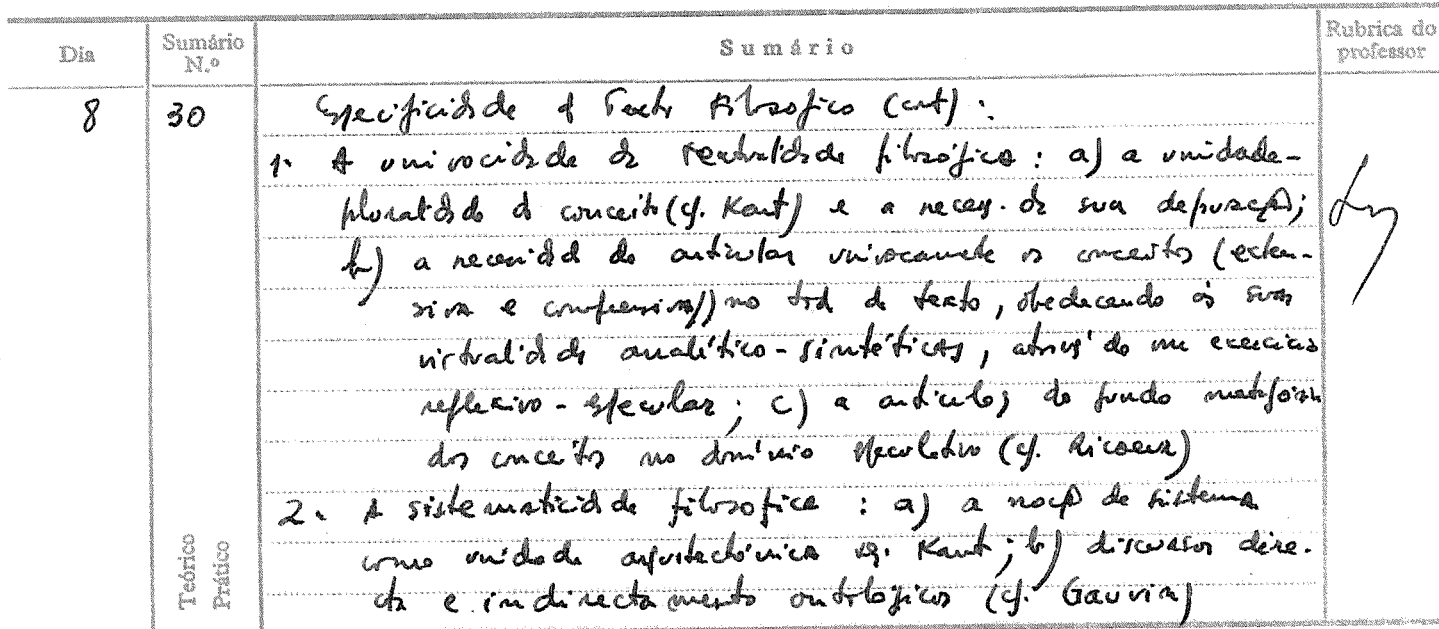 Dia
Sumário N.º
Sumário
Rubrica do professor
8 30 Especificidade d Texto Filosofico (cont):
1. A univocidade da textualidade filosófica: a) a unidade-
pluralidade do conceito (cf. Kant) e a neces. da sua depuração;
b) a necessidade de articular univocamente os conceitos (exten-
siva e compreensiva/) no de texto, obedecendo às suas
virtualidades analítico-sintéticas, através de um exercício
reflexivo-especular; c) a articulação do fundo metafórico
dos conceitos no domínio especulativo (cf. Ricoeur)
2. A sistematicidade filosofica : a) a noção de sistema
como unidade arquitectónica sg. Kant; b) discursos dire-
cta e indirectamente ontológicos (cf. Gauvin)
Teórico
Prático